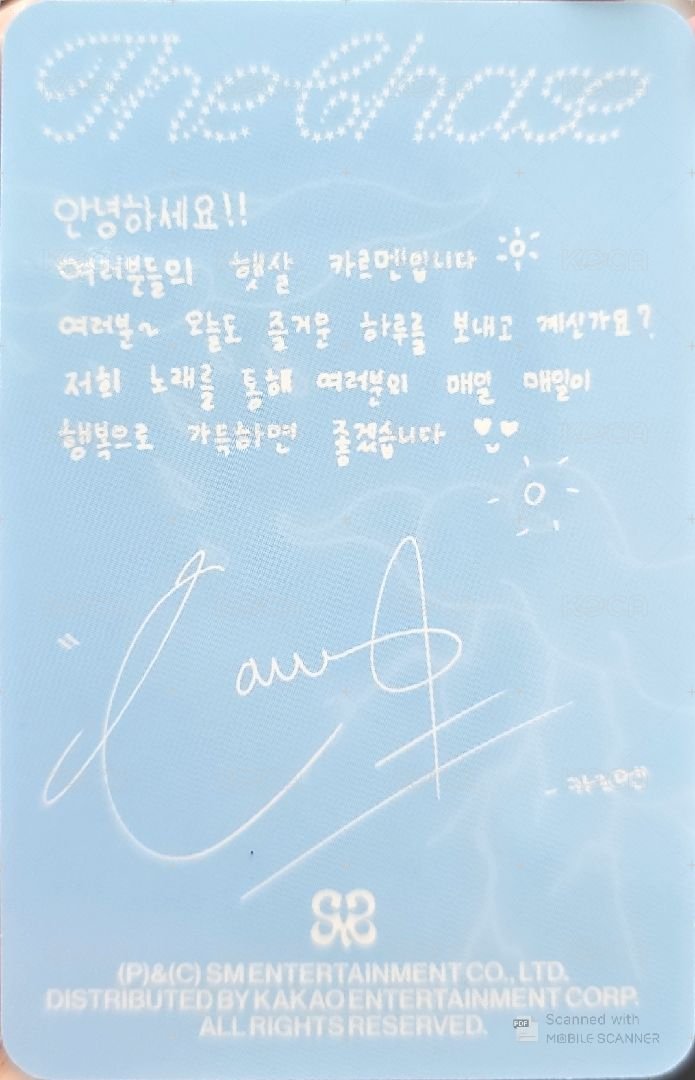 The Chase
안녕하세요!!
여러분들의 햇살 카르멘입니다
여러분~ 오늘도 즐거운 하루를 보내고 계신가요?
저희 노래를 통해 여러분의 매일 매일이
행복으로 가득하면 좋겠습니다
- 카르멘
(P)&(C) SM ENTERTAINMENT CO., LTD.
DISTRIBUTED BY KAKAO ENTERTAINMENT CORP.
ALL RIGHTS RESERVED.
PDF Scanned with
MOBILE SCANNER